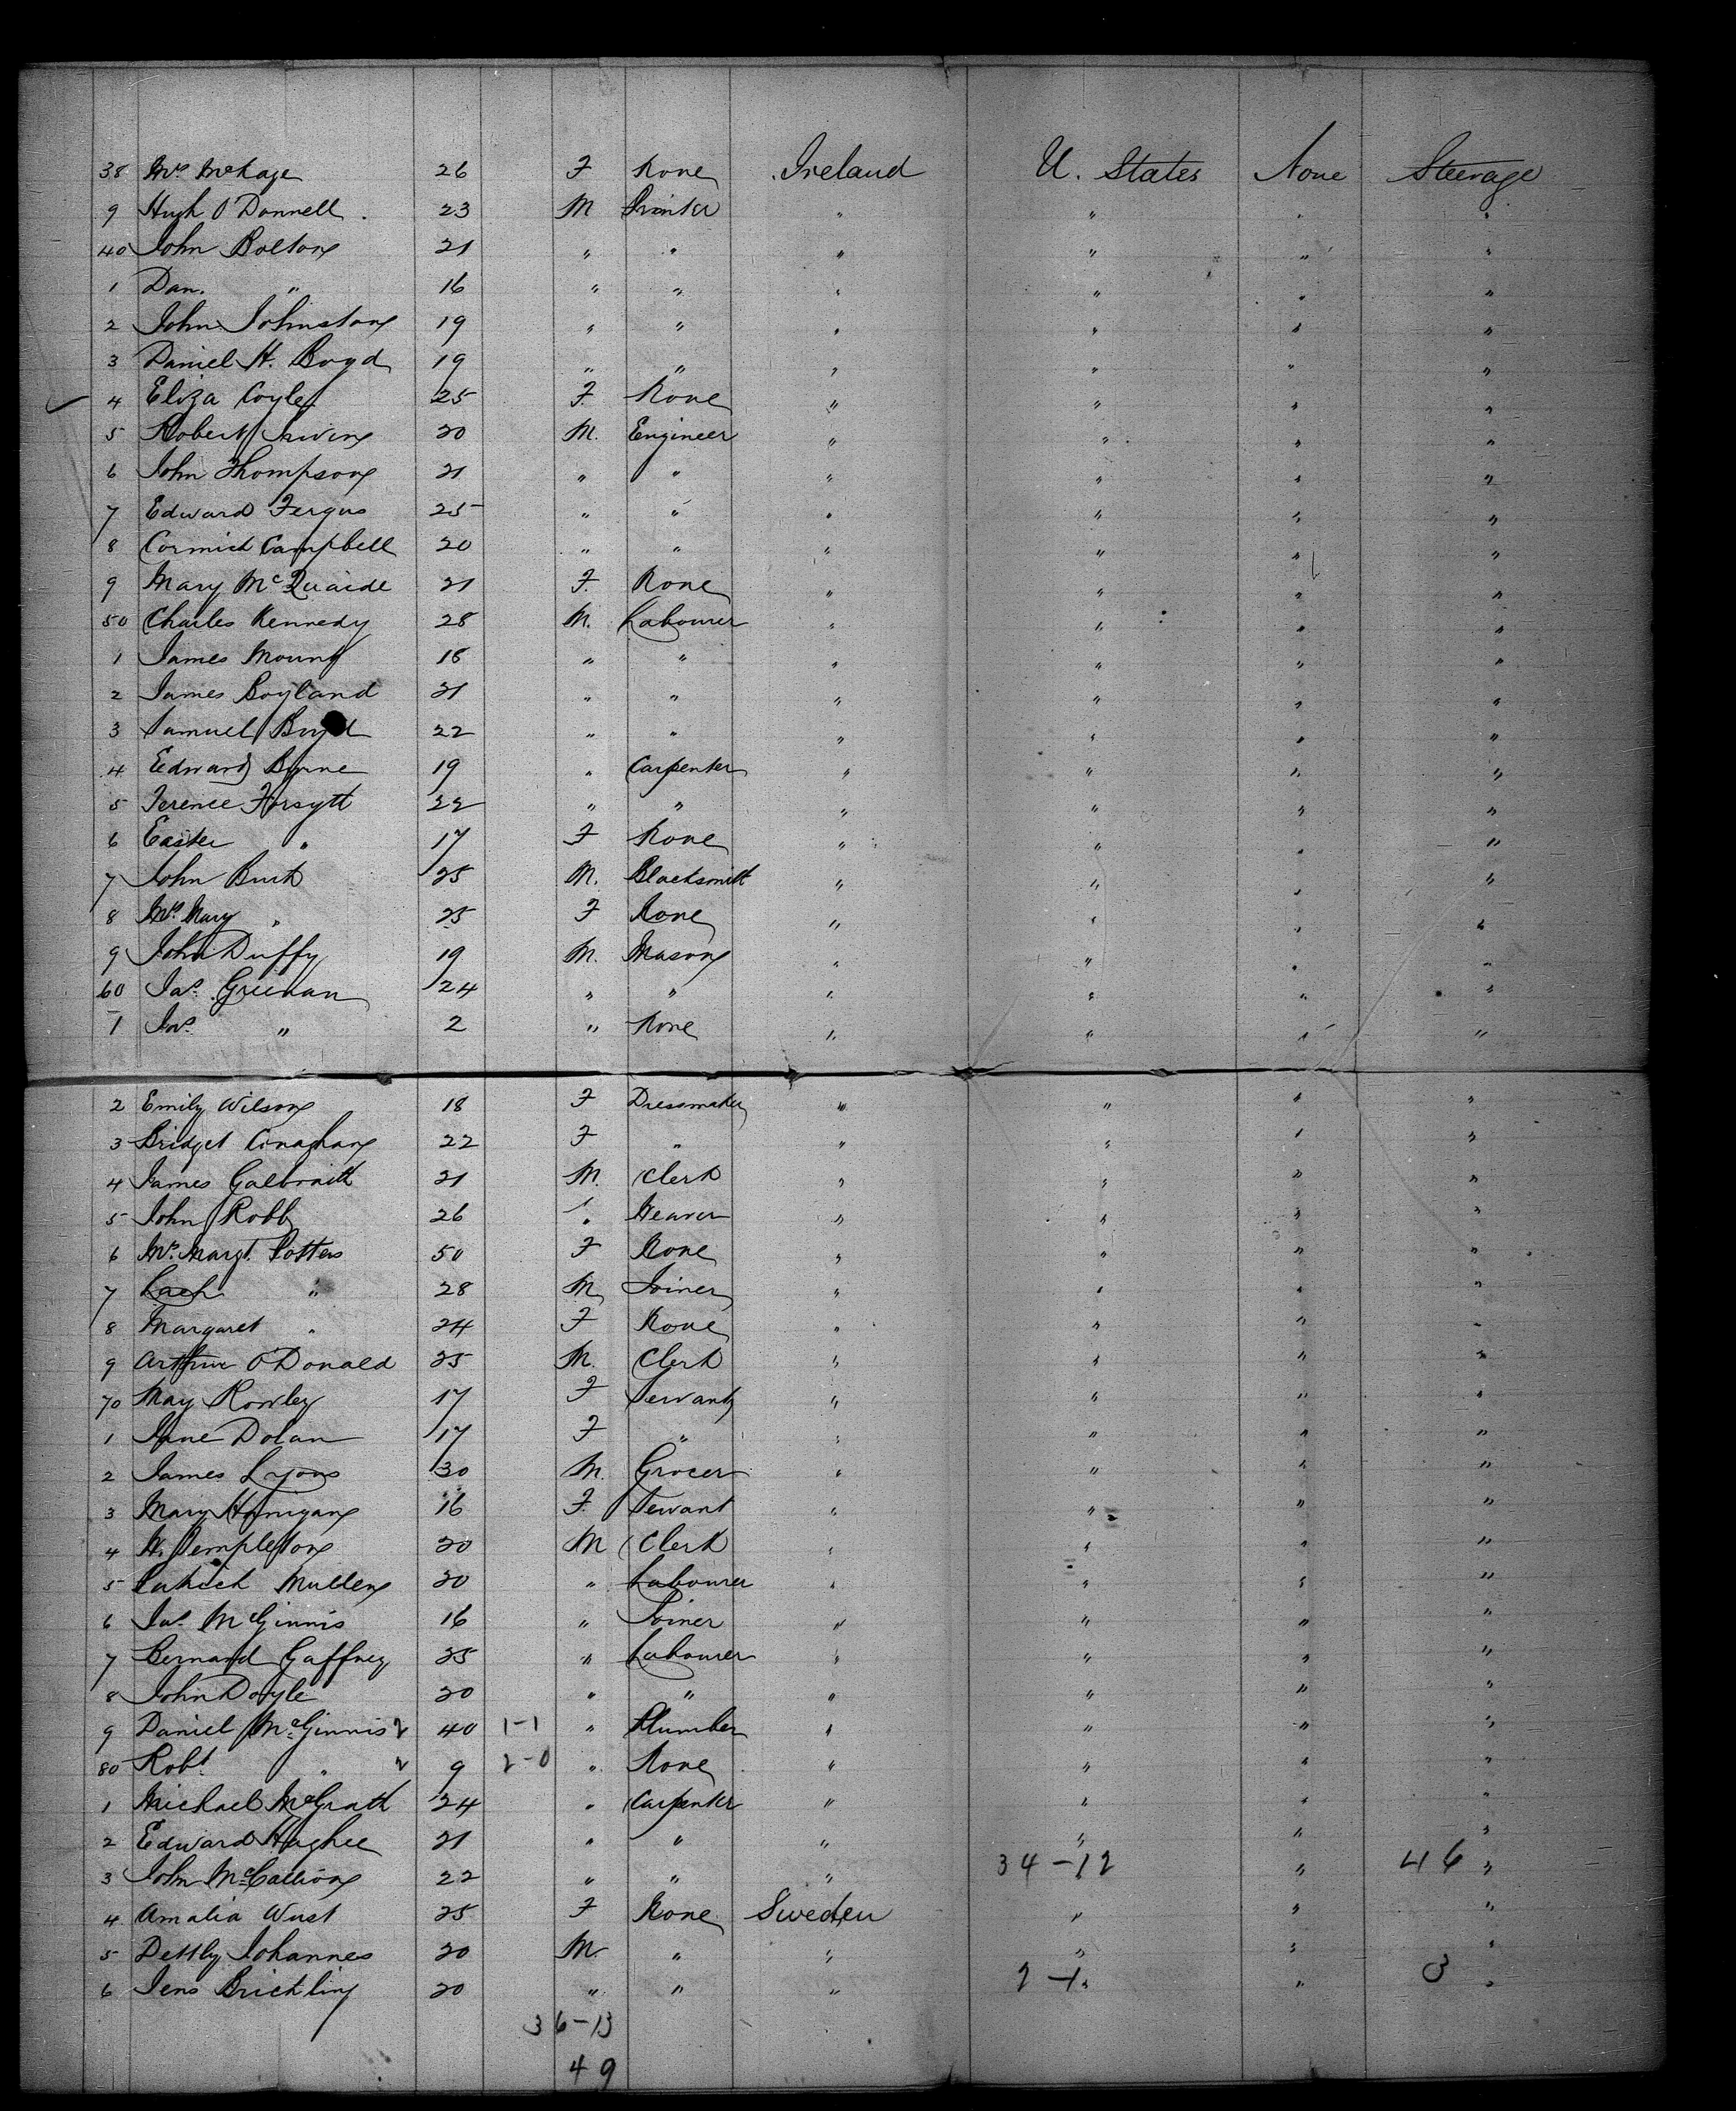 38 Mrs McKage 26 F None Ireland U. States None Steerage
9 Hugh O'Donnell 23 M Printer " " " "
40 John Bolton 21 " " " " " "
1 Dan. " 16 " " " " " "
2 John Johnston 19 " " " " " "
3 Daniel H. Boyd 19 " " " " " "
4 Eliza Coyle 25 F. None " " " "
5 Robert Irvine 20 M. Engineer " " " "
6 John Thompson 21 " " " " " "
7 Edward Fergus 25 " " " " " "
8 Cormick Campbell 20 " " " " " "
9 Mary McQuaide 21 F. None " " " "
50 Charles Kennedy 28 M. Labourer " " " "
1 James 18 " " " " " "
2 James Boyland 21 " " " " " "
3 Samuel Boyd 22 " " " " " "
4 Edward Byrne 19 " Carpenter " " " "
5 Terence Forsyth 22 " " " " " "
6 Easter " 17 F None " " " "
7 John Burk 25 M. Blacksmith " " " "
8 Mrs Mary " 25 F None " " " "
9 John Duffy 19 M. Mason " " " "
60 Jas. Greenan 24 " " " " " "
1 Jno. " 2 " None " " " "
2 Emily Wilson 18 F Dressmaker " " " "
3 Bridget Conaghan 22 F " " " " "
4 James Galbraith 21 M. Clerk " " " "
5 John Robb 26 " Weaver " " " "
6 Mrs. Margt. Potters 50 F None " " " "
7 " 28 M Joiner " " " "
8 Margaret " 24 F None " " " "
9 Arthur O'Donald 25 M. Clerk " " " "
70 May Rowley 17 F Servant " " " "
1 Jane Dolan 17 F " " " " "
2 James Lyons 30 M. Grocer " " " "
3 Mary Hannigan 16 F. Servant " " " "
4 W. Templeton 20 M Clerk " " " "
5 Patrick Mullen 20 " Labourer " " " "
6 Jas. McGinnis 16 " Joiner " " " "
7 Bernard Gaffney 25 " Labourer " " " "
8 John Doyle 20 " " " " " "
9 Daniel McGinnis 2 40 1-1 " Plumber " " " "
80 Robt. " 2 9 2-0 " None " " " "
1 Michael McGrath 24 " Carpenter " " " "
2 Edward Hughee 21 " " " " " "
3 John McCallion 22 " " " 34-12 " 46 "
4 Amalia Wust 25 F None Sweden " " "
5 Dettly Johannes 20 M. " " " " "
6 Jens Brickling 20 " " " 2-1 " 3 "
36-13
49